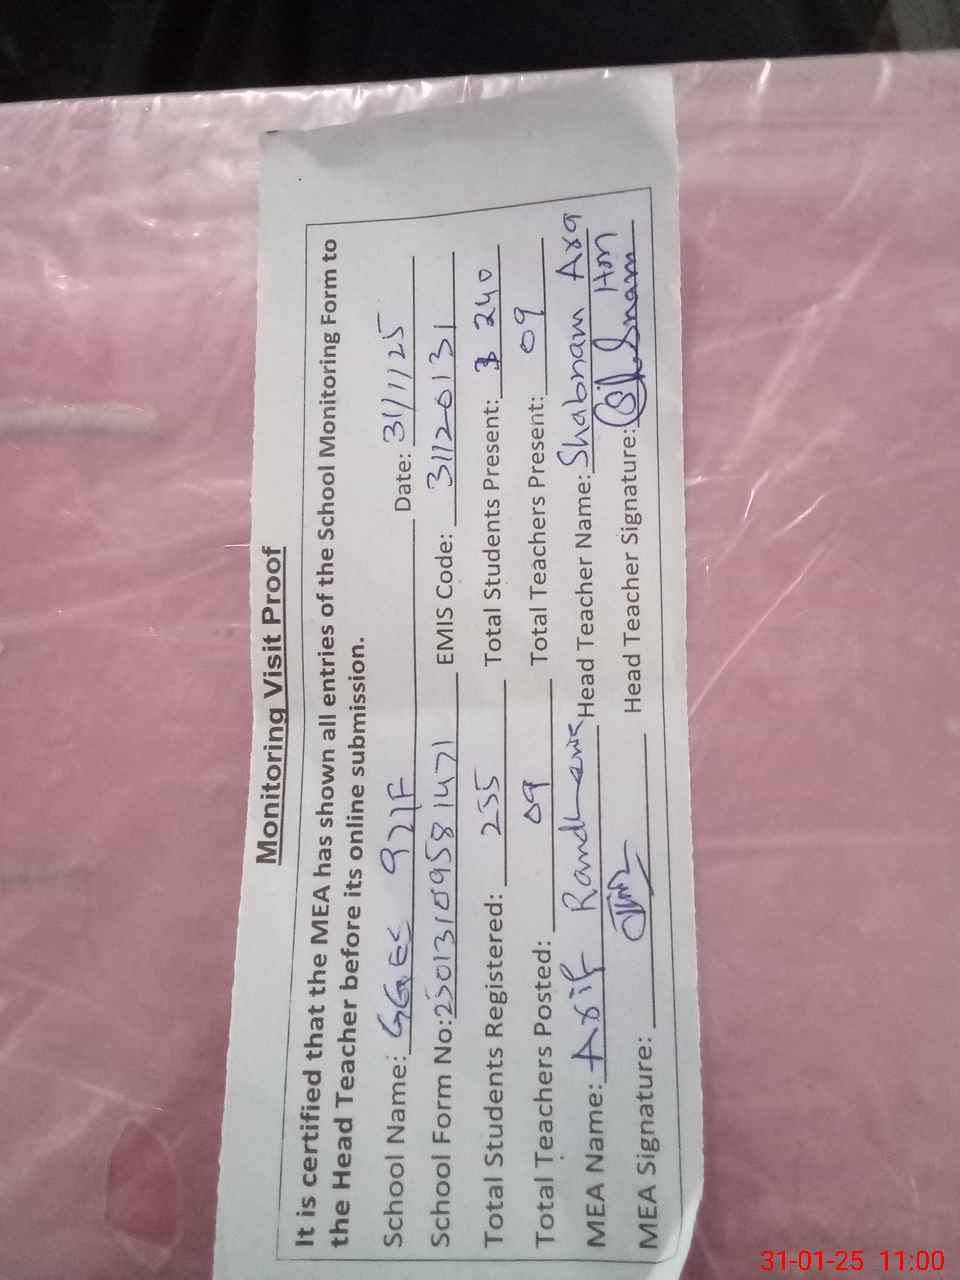 Monitoring Visit Proof
It is certified that the MEA has shown all entries of the School Monitoring Form to
the Head Teacher before its online submission.
School Name: GGES 921F Date: 31/1/25
School Form No: 25013109581471 EMIS Code: 31120131
Total Students Registered: 255 Total Students Present: 240
Total Teachers Posted: 09 Total Teachers Present: 09
MEA Name: Asif Randhawa Head Teacher Name: Shabnam Ara
MEA Signature: Head Teacher Signature: Shabnam Hm
31-01-25 11:00